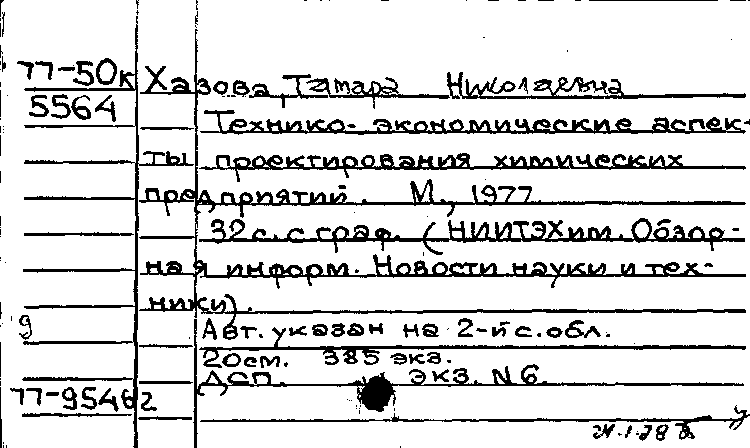 77-50к Хазова, Тамара Николаевна
5564
Технико-экономические аспек-
ты проектирования химических
предприятий. М., 1977.
32 с. с граф. (НИИТЭХим. Обзор-
ная информ. Новости науки и тех-
ники).
9 Авт. указан на 2-й с. обл.
20см. 385 экз.
ДСП. экз. N6.
77-95482